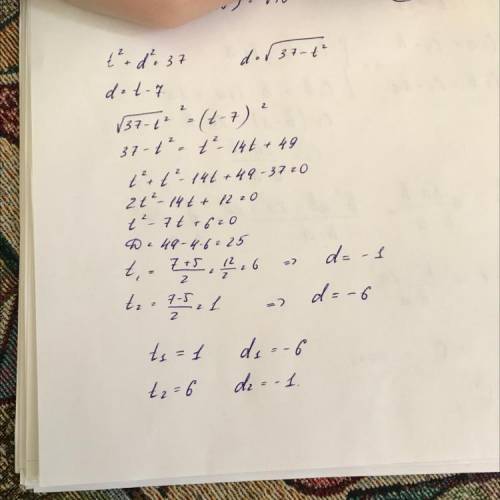 t² + d² = 37 d = √(37 - t²)
d = t - 7
√(37 - t²)² = (t - 7)²
37 - t² = t² - 14t + 49
t² + t² - 14t + 49 - 37 = 0
2t² - 14t + 12 = 0
t² - 7t + 6 = 0
D = 49 - 4·6 = 25
t₁ = (7+5)/2 = 12/2 = 6 => d = -1
t₂ = (7-5)/2 = 1 => d = -6
t₁ = 1 d₁ = -6
t₂ = 6 d₂ = -1.